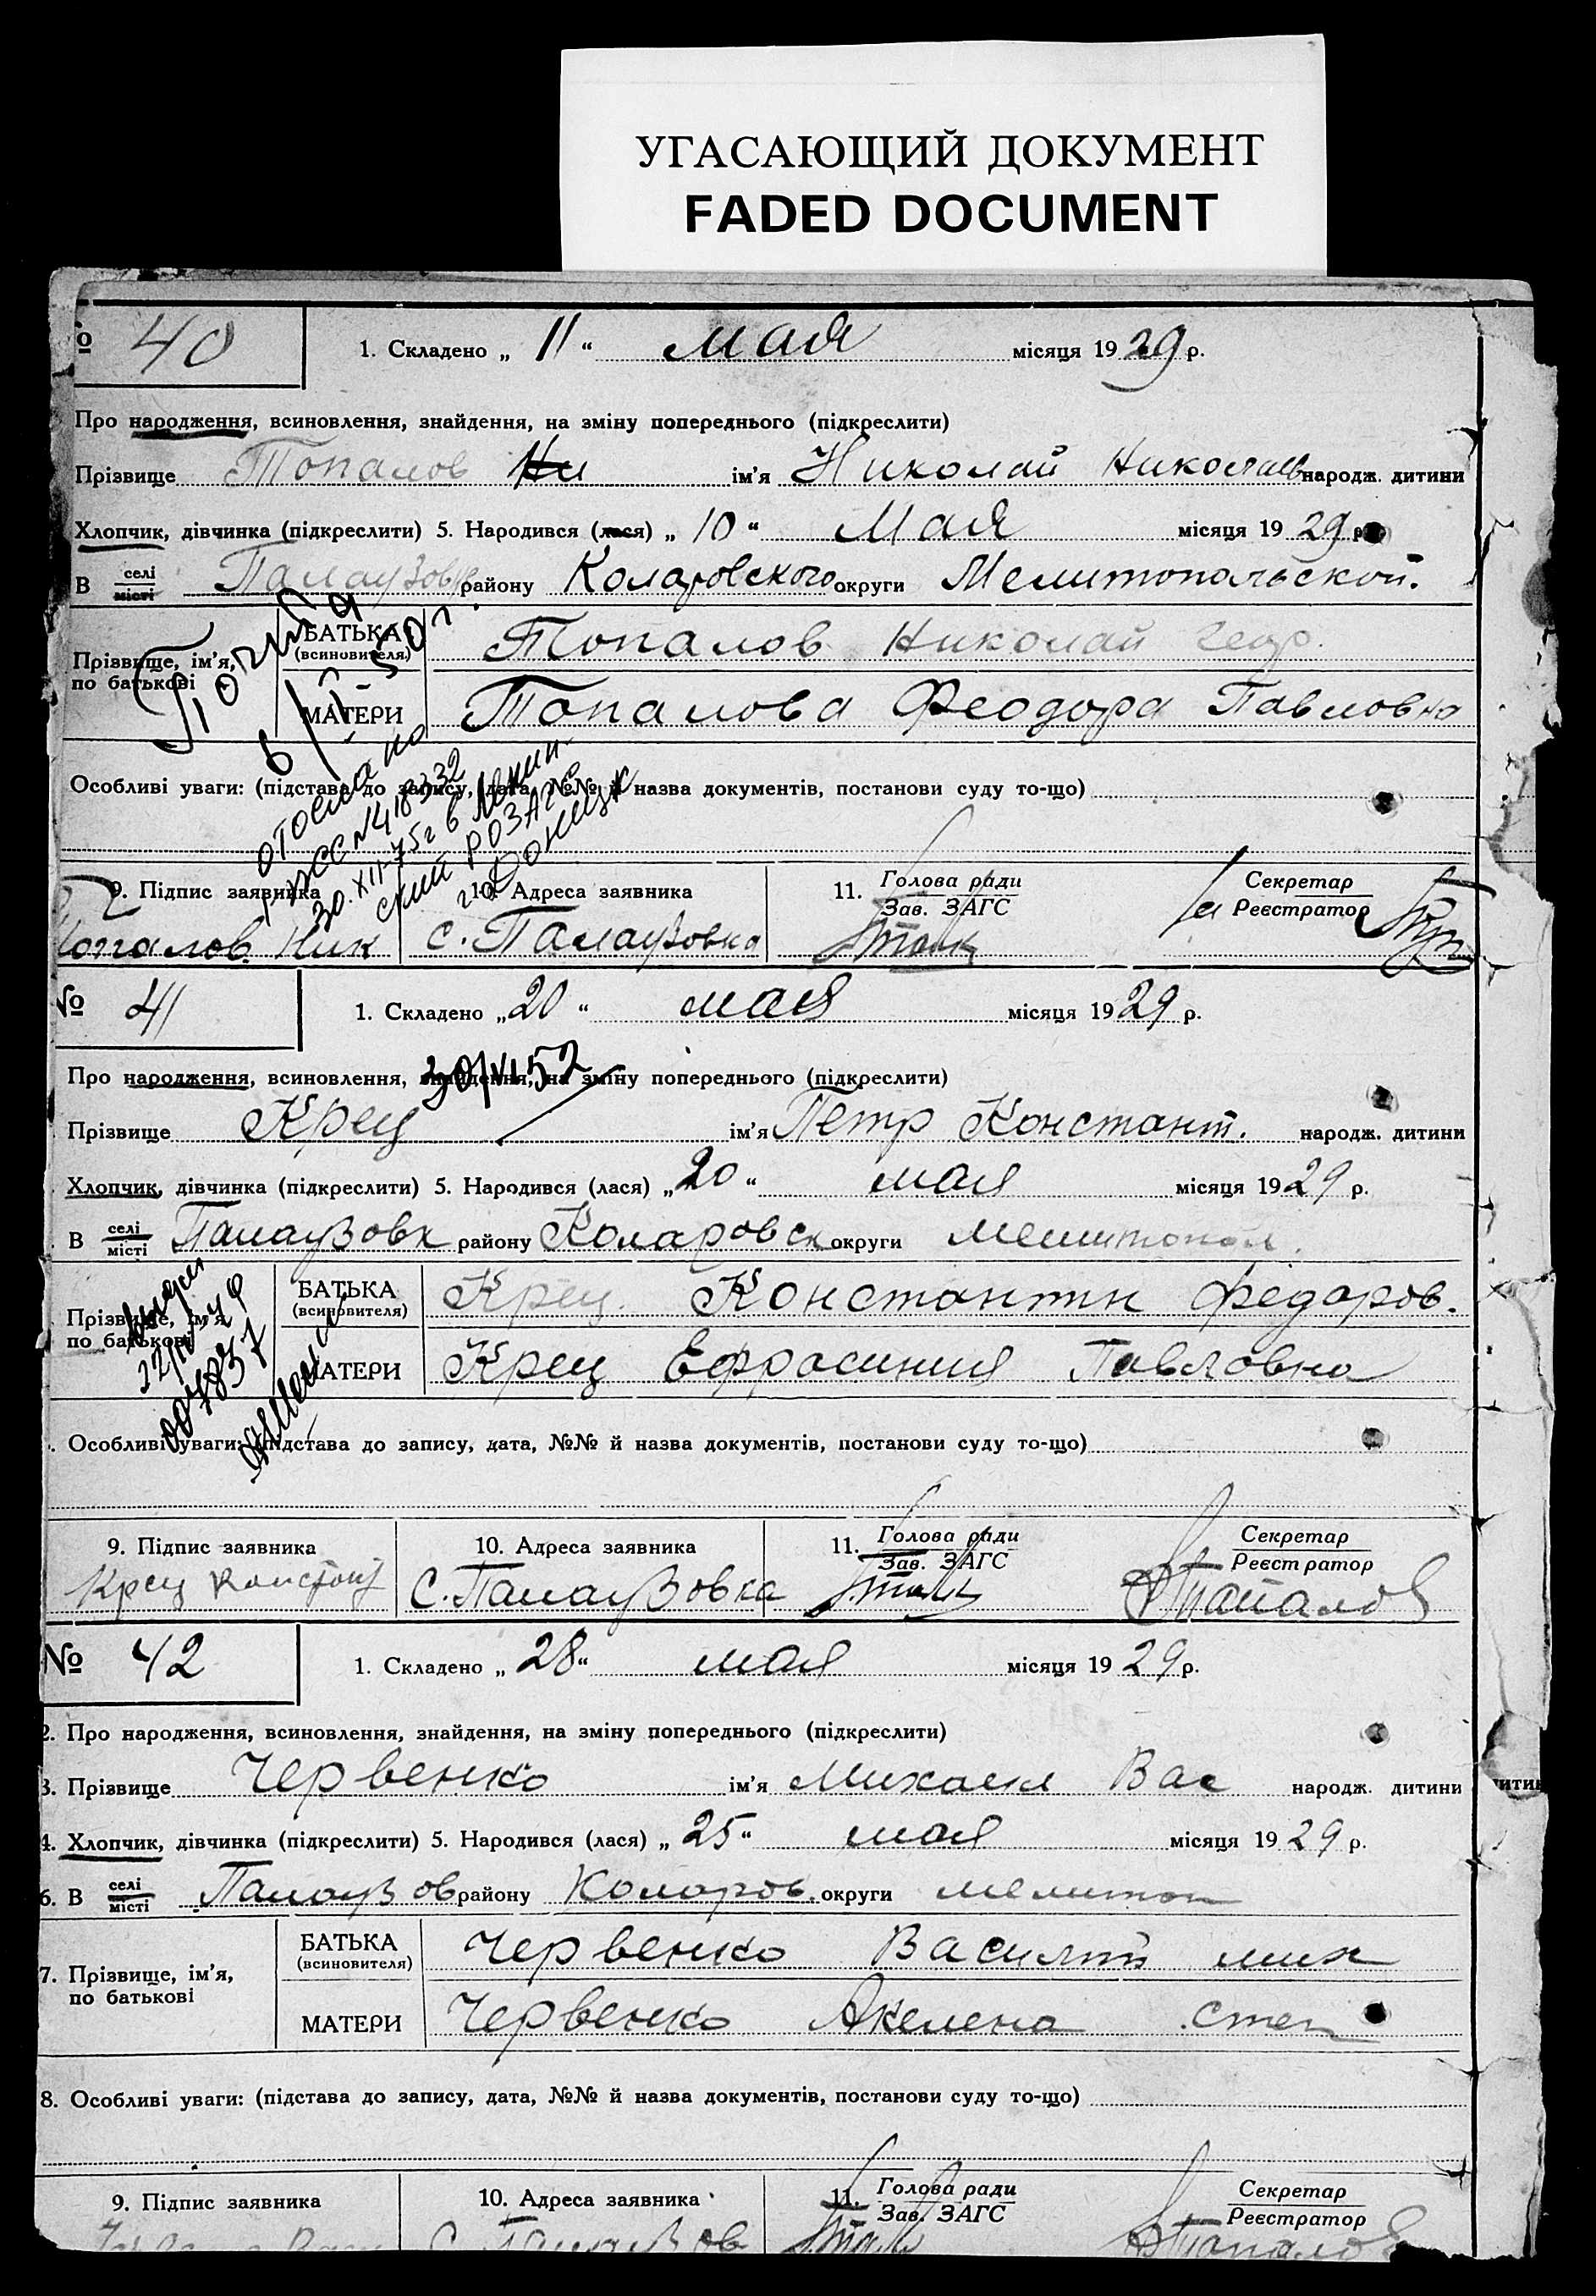 УГАСАЮЩИЙ ДОКУМЕНТ
FADED DOCUMENT
№ 40
1. Складено „ 11 “ мая місяця 1929 р.
Про народження, всиновлення, знайдення, на зміну попереднього (підкреслити)
Прізвище Топалов Ни ім’я Николай Николаев народж. дитини
Хлопчик, дівчинка (підкреслити) 5. Народився (лася) „ 10 “ Мая місяця 1929 р.
В селі місті Палаузовк району Коларовского округи Мелитопольской.
Прізвище, ім’я, по батькові
БАТЬКА (всиновителя) Топалов Николай Геор.
МАТЕРИ Топалова Феодора Павловна
Особливі уваги: (підстава до запису, дата, №№ й назва документів, постанови суду то-що)
№418332
30.XII-75г в Ленин-
ский РОЗАГС
г. Донецк
9. Підпис заявника 10. Адреса заявника 11. Голова ради Зав. ЗАГС Секретар Реєстратор
Топалов Ник с. Палаузовка
№ 41
1. Складено „20 “ мая місяця 1929 р.
30/VI 52
Про народження, всиновлення, знайдення, на зміну попереднього (підкреслити)
Прізвище Крец ім’я Петр Констант. народж. дитини
Хлопчик, дівчинка (підкреслити) 5. Народився (лася) „20 “ мая місяця 1929 р.
В селі місті Палаузовк району Коларовск округи Мелитопол.
Прізвище, ім’я, по батькові
БАТЬКА (всиновителя) Крец Константин Федоров.
МАТЕРИ Крец Ефросиния Павловна
007837
Особливі уваги: (підстава до запису, дата, №№ й назва документів, постанови суду то-що)
9. Підпис заявника 10. Адреса заявника 11. Голова ради Зав. ЗАГС Секретар Реєстратор
Крец Констант С. Палаузовка Тапалов
№ 42
1. Складено „ 28“ мая місяця 1929 р.
2. Про народження, всиновлення, знайдення, на зміну попереднього (підкреслити)
3. Прізвище Червенко ім’я Михаил Вас народж. дитини
4. Хлопчик, дівчинка (підкреслити) 5. Народився (лася) „ 25“ мая місяця 1929 р.
6. В селі місті Палаузов району Коларов. округи Мелитоп
7. Прізвище, ім’я, по батькові
БАТЬКА (всиновителя) Червенко Василий мих
МАТЕРИ Червенко Акелена Степ
8. Особливі уваги: (підстава до запису, дата, №№ й назва документів, постанови суду то-що)
9. Підпис заявника 10. Адреса заявника 11. Голова ради Зав. ЗАГС Секретар Реєстратор
С. Палаузов Тапалов